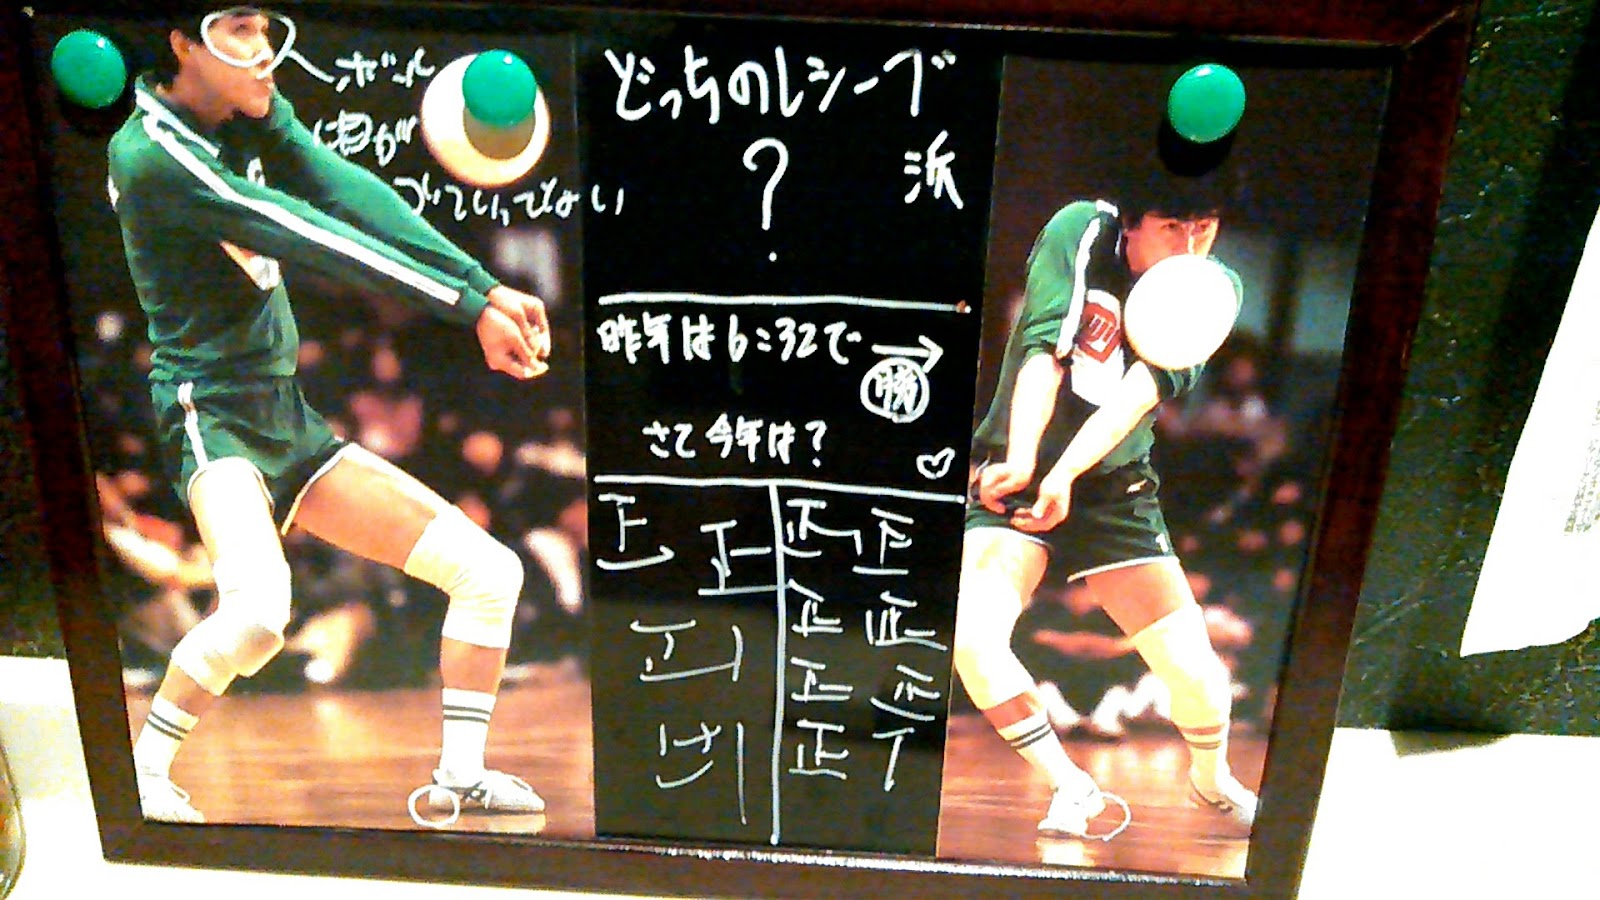 ボール
に目が
ついていってない
どっちのレシーブ
?
浜
昨年は6:32で→
勝
さて今年は?
正 正
正
正 正
正 正
正
正 T